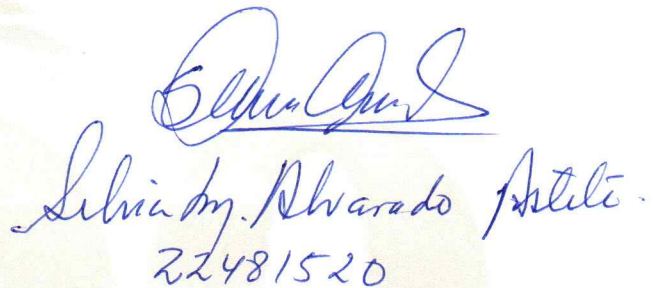 Silvia Alvarado Astete.
22481520